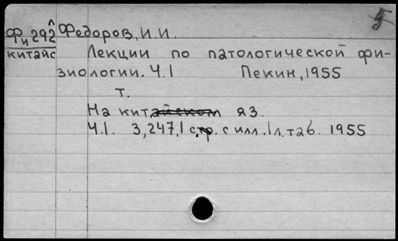 Фи292л Федоров, И.И.
китайс Лекции по патологической фи-
зиологии. Ч.1 Пекин, 1955
т.
На китайском яз.
Ч.1. 3,247,1 стр. с илл. 1 л. таб. 1955